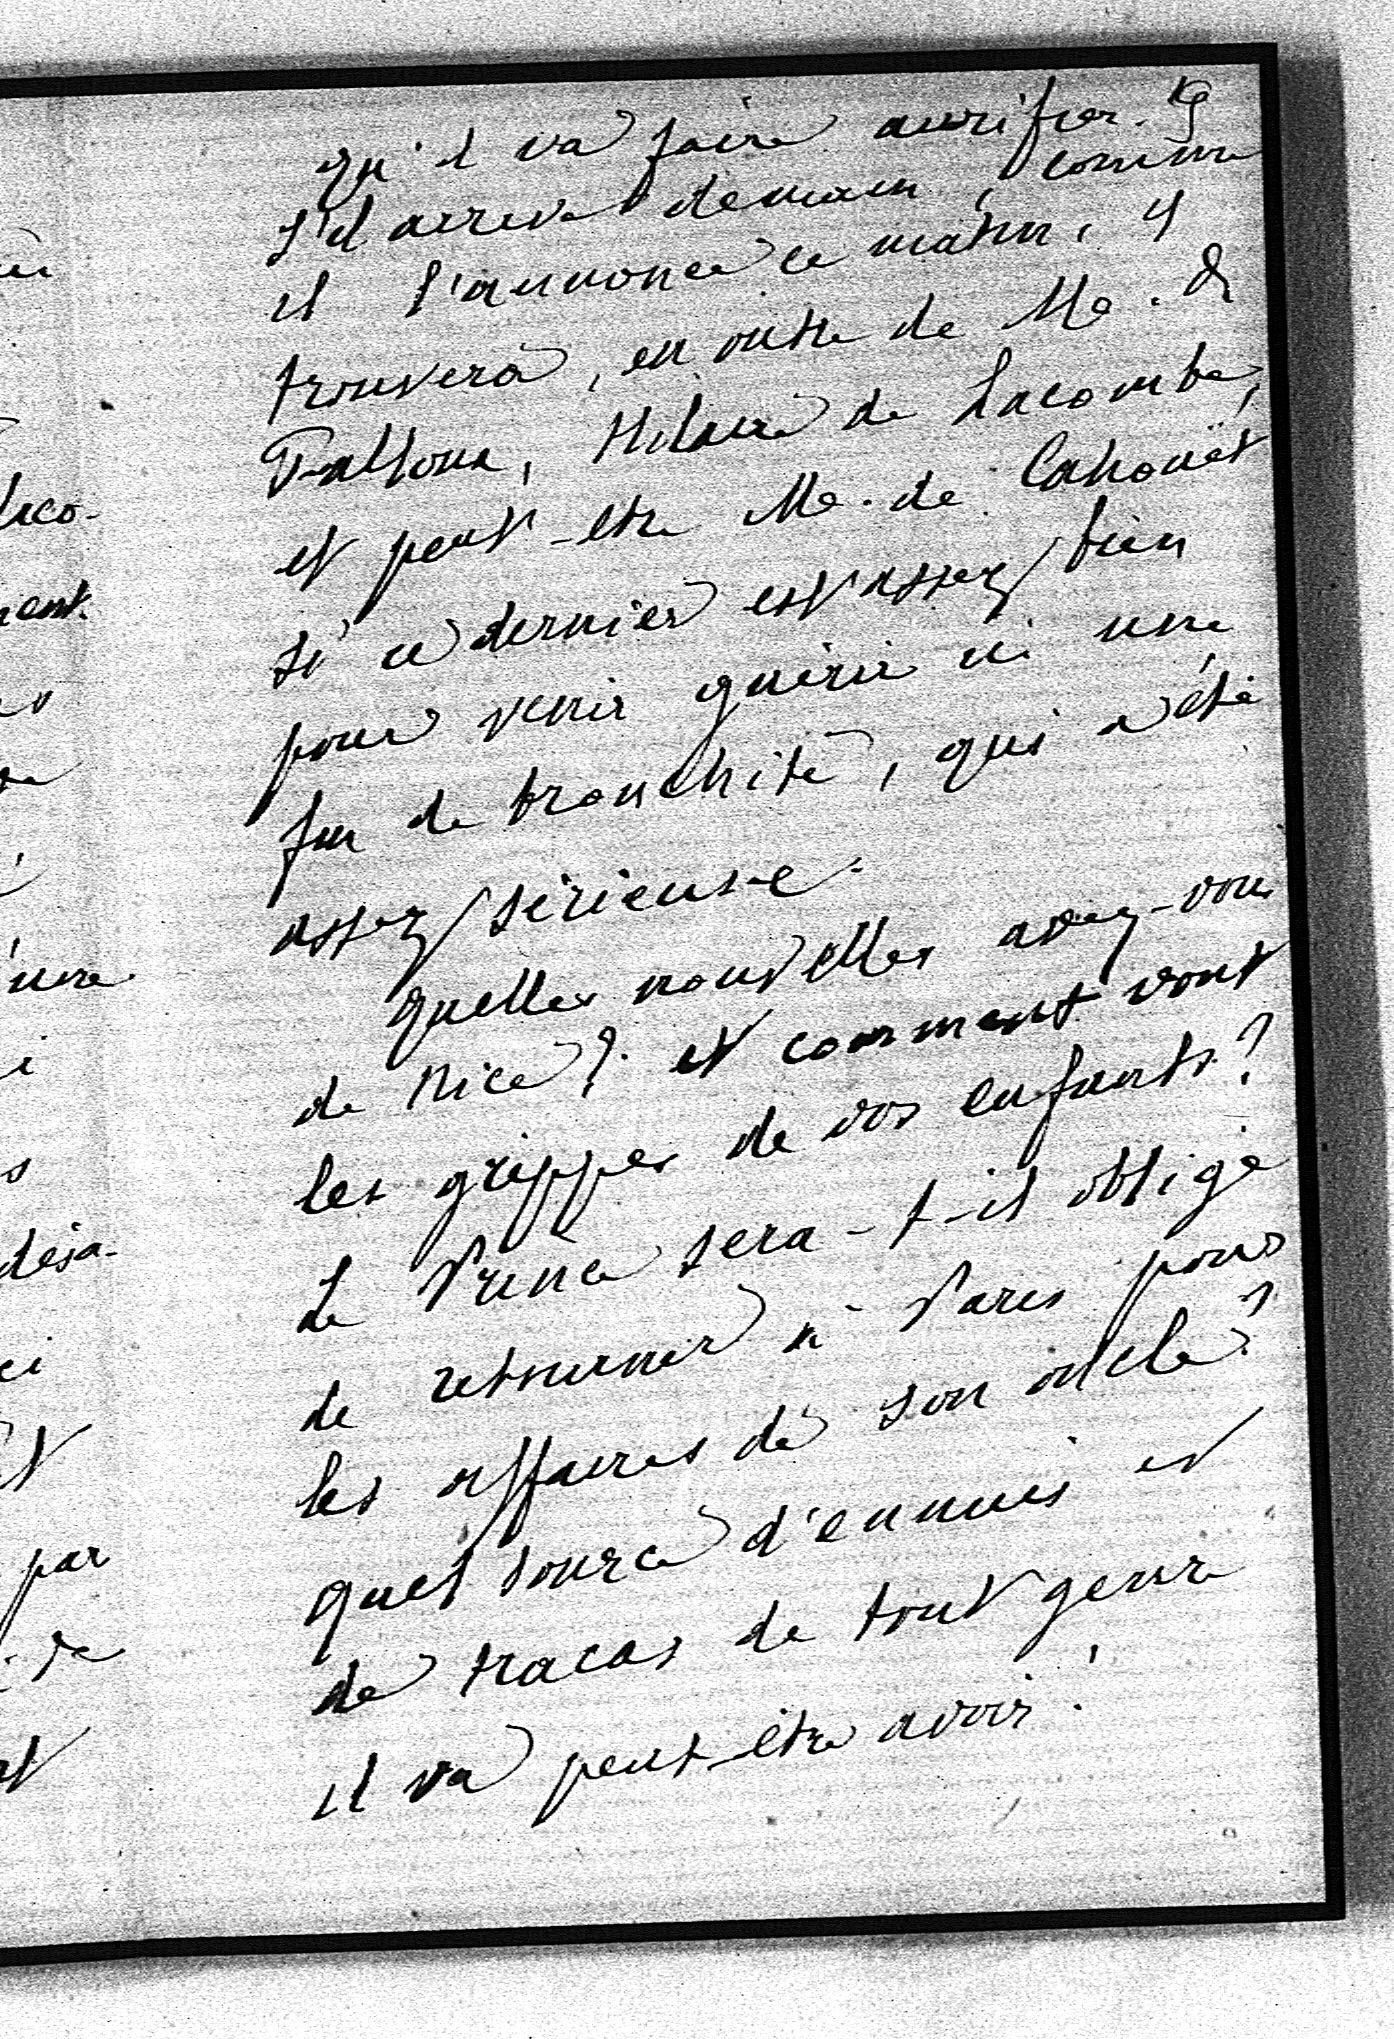 qu'il va faire aurifier.
s'il arrive demain, comme
il l'annonce ce matin, il
trouvera, en outre de Me. de
Falloux, Hilaire de Lacombe,
et peut-etre Me. de Cahouët
si ce dernier est assez bien
pour venir guérir ici une
fin de bronchite, qui a été
assez sérieuse.
quelles nouvelles avez-vous
de Nice? et comment vont
les grippes de vos enfants?
Le Prince sera-t-il obligé
de retourner à Paris pour
les affaires de son oncle?
quel source d'ennuis et
de tracas de tout genre
il va peut-être avoir!
laco-
ment.
d'une
i
désa-
ci
par